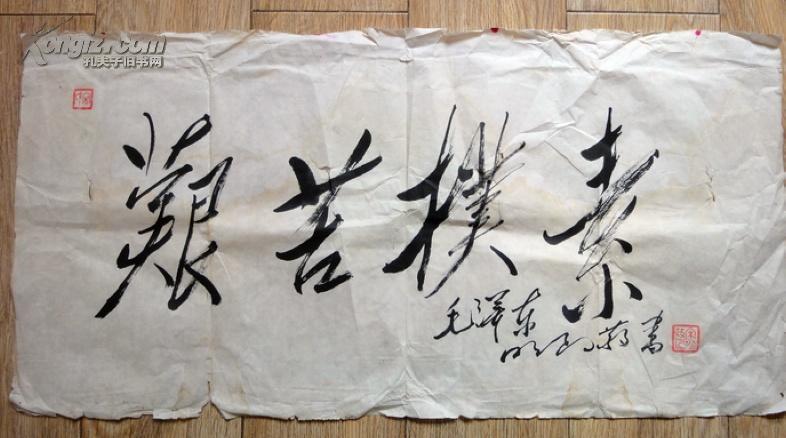 Kongfz.com
孔夫子旧书网
艱苦樸素
毛泽东
书